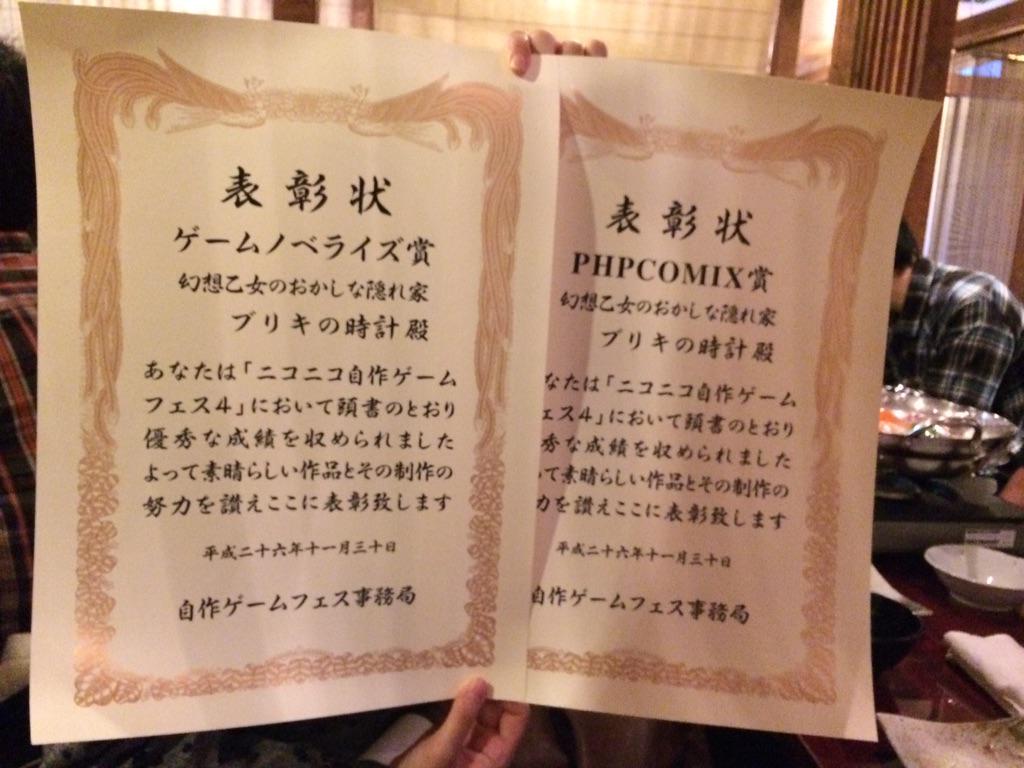 表彰状
ゲームノベライズ賞
幻想乙女のおかしな隠れ家
ブリキの時計殿
あなたは「ニコニコ自作ゲーム
フェス4」において頭書のとおり
優秀な成績を収められました
よって素晴らしい作品とその制作の
努力を讃えここに表彰致します
平成二十六年十一月三十日
自作ゲームフェス事務局
表彰状
PHPCOMIX賞
幻想乙女のおかしな隠れ家
ブリキの時計殿
なたは「ニコニコ自作ゲーム
ェス4」において頭書のとおり
秀な成績を収められました
って素晴らしい作品とその制作の
力を讃えここに表彰致します
平成二十六年十一月三十日
自作ゲームフェス事務局